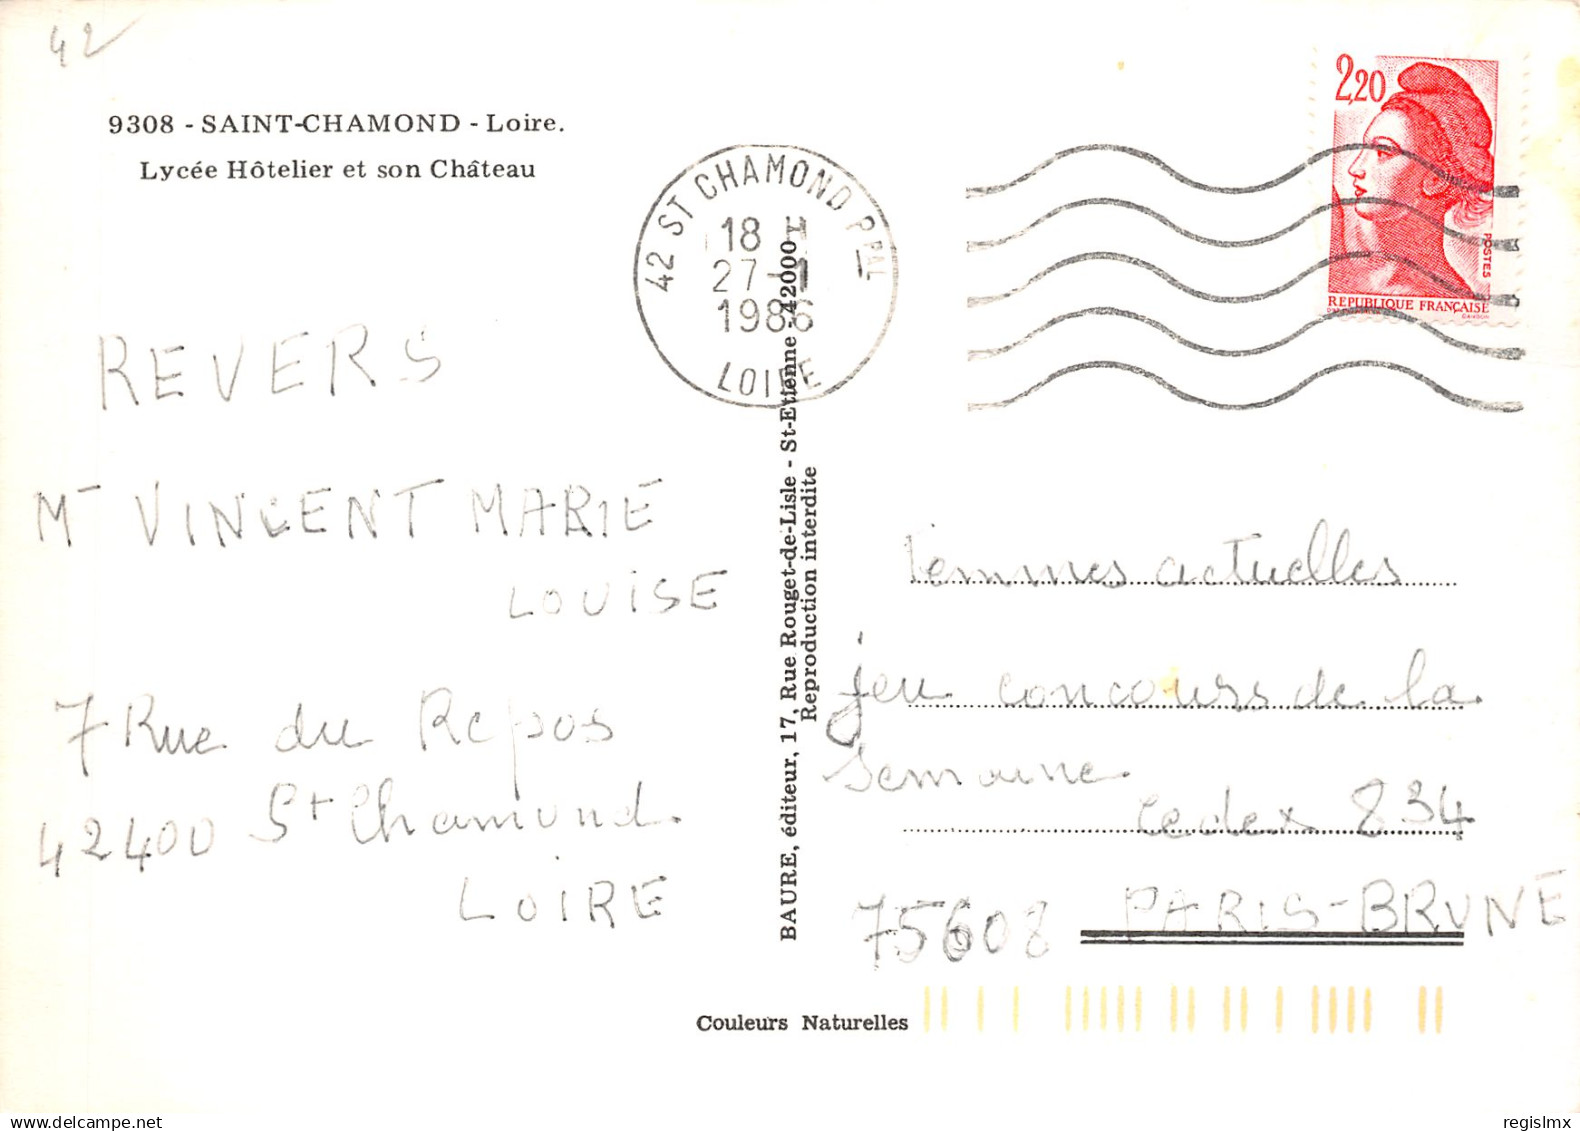 42
9308 - SAINT-CHAMOND - Loire.
Lycée Hôtelier et son Château
42 ST CHAMOND PPAL
18 H
27-1
1986
LOIRE
2,20
POSTES
REPUBLIQUE FRANÇAISE
GANDON
REVERS
Mr VINCENT MARIE
LOUISE
7 Rue du Repos
42400 St Chamond
LOIRE
BAURE, éditeur, 17, Rue Rouget-de-Lisle - St-Etienne 42000
Reproduction interdite
Femmes actuelles
jeu concours de la
semaine
cedex 834
75608 PARIS-BRUNE
Couleurs Naturelles
regislmx